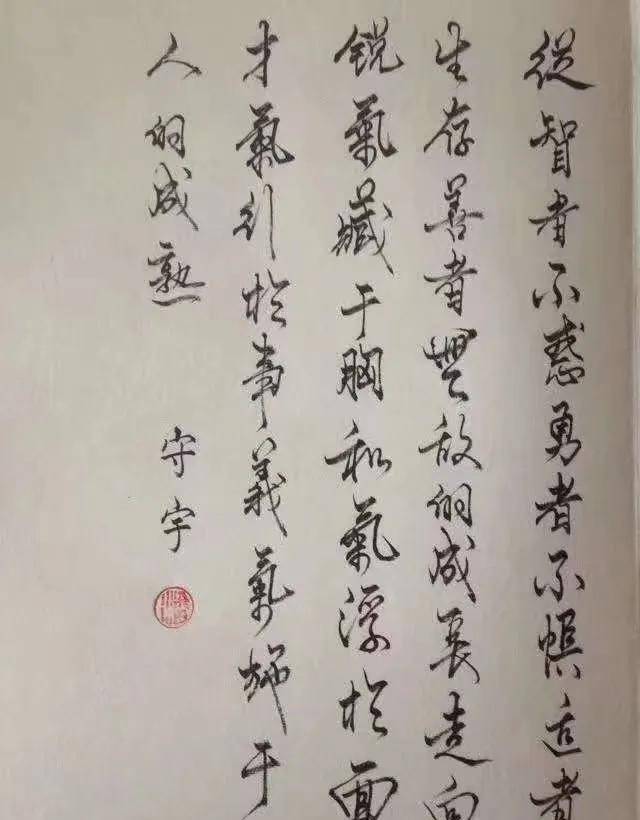 從智者不惑勇者不惧适者
生存善者無敌的成長走向
锐氣藏于胸和氣浮於面
才氣行於事義氣施于
人的成熟
守宇